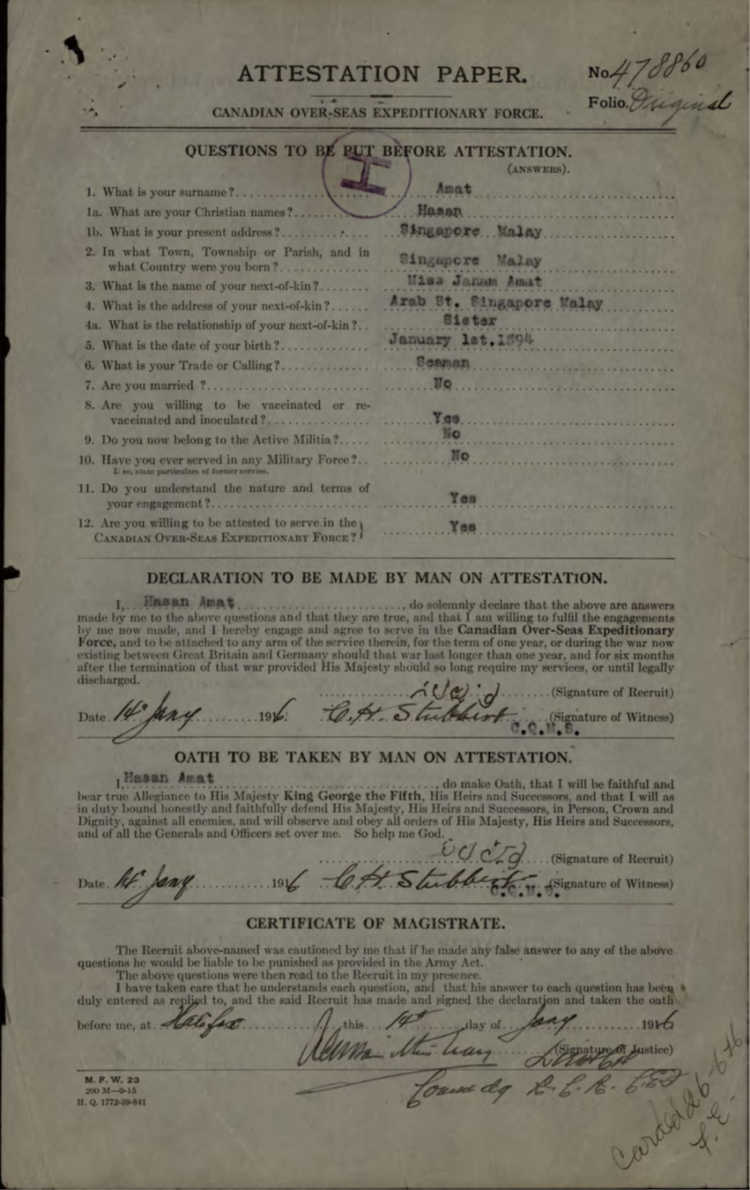 ATTESTATION PAPER.
No. 478860
Folio. Original
CANADIAN OVER-SEAS EXPEDITIONARY FORCE.
QUESTIONS TO BE PUT BEFORE ATTESTATION.
(ANSWERS).
H
1. What is your surname? Amat
1a. What are your Christian names? Hasan
1b. What is your present address? Singapore Malay
2. In what Town, Township or Parish, and in
what Country were you born? Singapore Malay
3. What is the name of your next-of-kin? Miss Janum Amat
4. What is the address of your next-of-kin? Arab St. Singapore Malay
4a. What is the relationship of your next-of-kin? Sister
5. What is the date of your birth? January 1st.1894
6. What is your Trade or Calling? Seaman
7. Are you married ? No
8. Are you willing to be vaccinated or re-
vaccinated and inoculated? Yes
9. Do you now belong to the Active Militia? No
10. Have you ever served in any Military Force? No
If so, state particulars of former service.
11. Do you understand the nature and terms of
your engagement? Yes
12. Are you willing to be attested to serve in the
CANADIAN OVER-SEAS EXPEDITIONARY FORCE? Yes
DECLARATION TO BE MADE BY MAN ON ATTESTATION.
I, Hasan Amat, do solemnly declare that the above are answers
made by me to the above questions and that they are true, and that I am willing to fulfil the engagements
by me now made, and I hereby engage and agree to serve in the Canadian Over-Seas Expeditionary
Force, and to be attached to any arm of the service therein, for the term of one year, or during the war now
existing between Great Britain and Germany should that war last longer than one year, and for six months
after the termination of that war provided His Majesty should so long require my services, or until legally
discharged.
(Signature of Recruit)
Date. 14th Jany 1916. C. H. Stubbert (Signature of Witness)
C.Q.M.S.
OATH TO BE TAKEN BY MAN ON ATTESTATION.
I, Hasan Amat, do make Oath, that I will be faithful and
bear true Allegiance to His Majesty King George the Fifth, His Heirs and Successors, and that I will as
in duty bound honestly and faithfully defend His Majesty, His Heirs and Successors, in Person, Crown and
Dignity, against all enemies, and will observe and obey all orders of His Majesty, His Heirs and Successors,
and of all the Generals and Officers set over me. So help me God.
(Signature of Recruit)
Date. 14th Jany 1916 C H Stubbert (Signature of Witness)
C.Q.M.S.
CERTIFICATE OF MAGISTRATE.
The Recruit above-named was cautioned by me that if he made any false answer to any of the above
questions he would be liable to be punished as provided in the Army Act.
The above questions were then read to the Recruit in my presence.
I have taken care that he understands each question, and that his answer to each question has been
duly entered as replied to, and the said Recruit has made and signed the declaration and taken the oath
before me, at Halifax this 14th day of Jany 1916
(Signature of Justice)
Comm dg R. C. R. CEF
M. F. W. 23
200 M—9-15
H. Q. 1772-39-841
Carded 26-6-16
F.E.